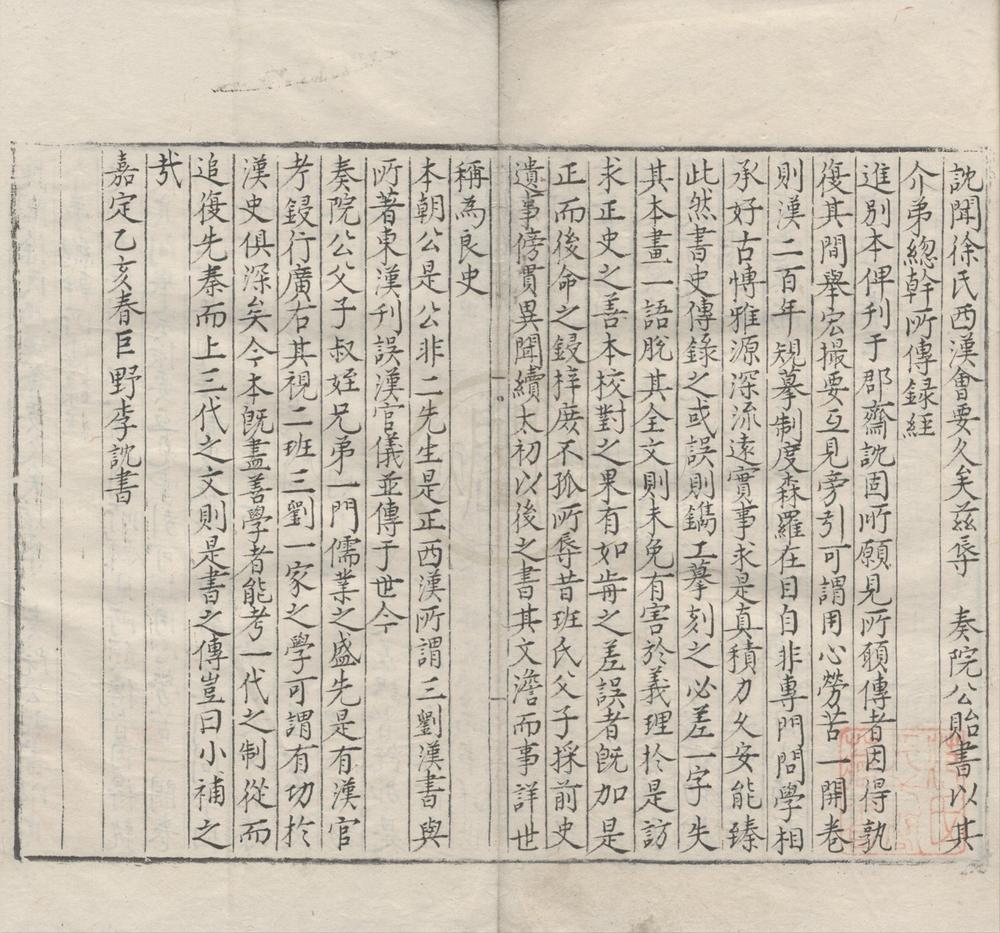 訦聞徐氏西漢會要久矣茲辱　奏院公貽書以其
介弟總幹所傳録經
進別本俾刊于郡齋訦固所願見所願傳者因得孰
復其間舉宏撮要互見旁引可謂用心勞苦一開卷
則漢二百年規摹制度森羅在目自非專門問學相
承好古愽雅源深流遠實事求是真積力久安能臻
此然書史傳錄之或誤則鐫工摹刻之必差一字失
其本畫一語脫其全文則未免有害於義理於是訪
求正史之善本校對之果有如毎之差誤者旣加是
正而後命之鋟梓庻不孤所辱昔班氏父子採前史
遺事傍貫異聞續太初以後之書其文澹而事詳世
稱為良史
本朝公是公非二先生是正西漢所謂三劉漢書與
所著東漢刊誤漢官儀並傳于世今
奏院公父子叔姪兄弟一門儒業之盛先是有漢官
考鋟行廣右其視二班三劉一家之學可謂有功於
漢史俱深矣今本旣盡善學者能考一代之制從而
追復先秦而上三代之文則是書之傳豈曰小補之
㦲
嘉定乙亥春巨野李訦書